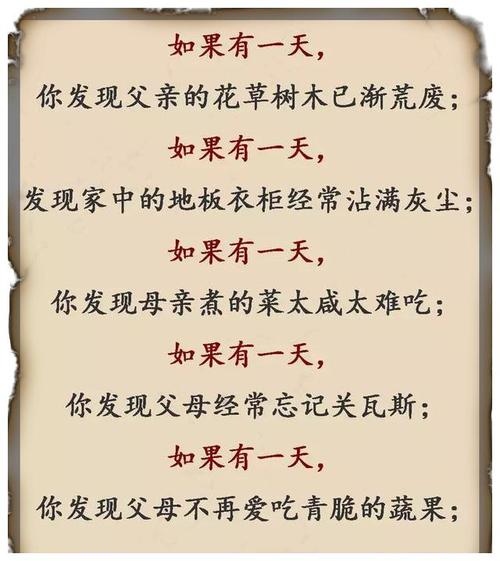 如果有一天，
你发现父亲的花草树木已渐荒废；
如果有一天，
发现家中的地板衣柜经常沾满灰尘；
如果有一天，
你发现母亲煮的菜太咸太难吃；
如果有一天，
你发现父母经常忘记关瓦斯；
如果有一天，
你发现父母不再爱吃青脆的蔬果；